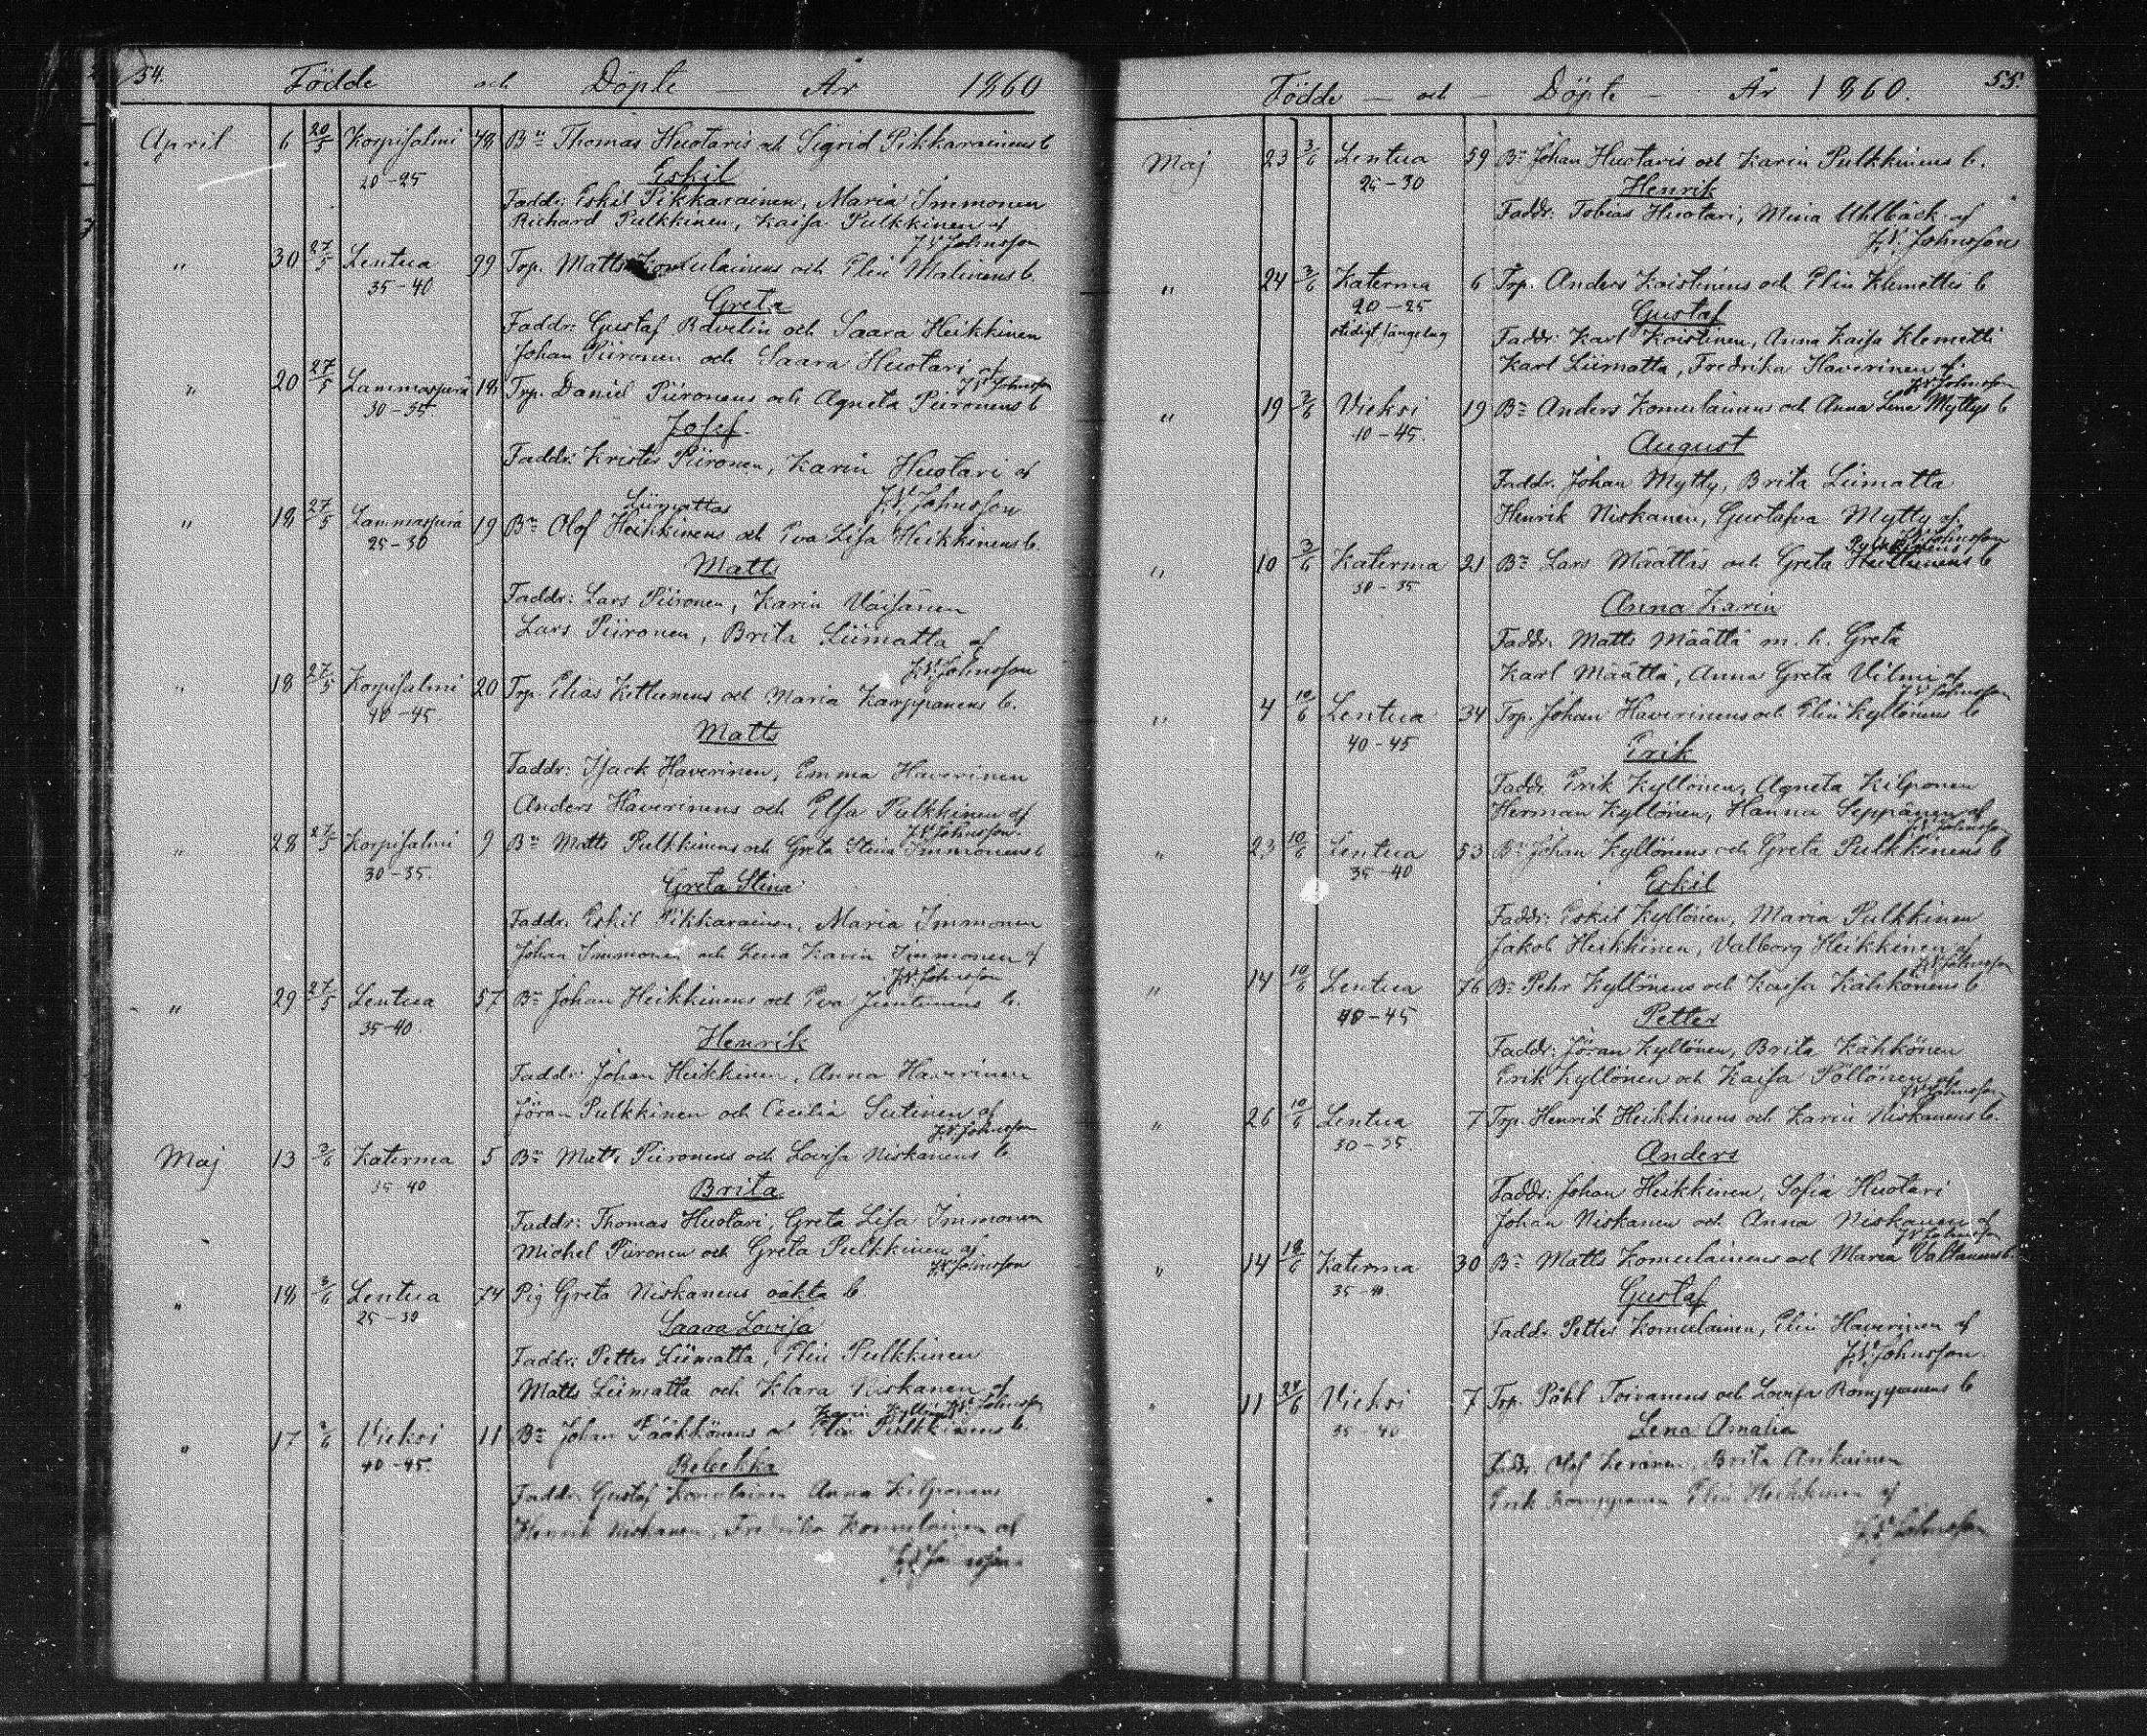 54.
Födde och Döpte — År 1860
April 6 20/5 Korpisalmi 48 Bn Thomas Huotaris och Sigrid Pikkarainens b
20-25 Eskil
Faddr: Eskil Pikkarainen, Maria Immonen
Richard Pulkkinen, Kaisa Pulkkinen af
J.V. Johnsson
" 30 27/5 Lentua 99 Trp. Matts Komulainens och Elin Malinens b.
35-40 Greta
Faddr: Gustaf och Saara Heikkinen
Johan Piironen och Saara Huotari af
J.V. Johnsson
" 20 27/5 Lammasperä 18 Trp. Daniel Piironens och Agneta Piironens b
30-35 Josef.
Faddr: Krister Piironen, Karin Huotari af
J.V. Johnsson
Liimattas
" 18 27/5 Lammasperä 19 Bn Olof Heikkinens och Eva Lisa Heikkinens b.
25-30 Matts
Faddr: Lars Piironen, Karin Väisänen
Lars Piironen, Brita Liimatta af
J.V. Johnsson
" 18 27/5 Korpisalmi 20 Trp. Elias Kettunens och Maria Karppanens b.
40-45. Matts
Faddr: Isack Haverinen, Emma Haverinen
Anders Haverinens och Elsa Pulkkinen af
J.V. Johnsson.
" 28 27/5 Korpisalmi 9 Bn Matts Pulkkinens och Greta Stina Immonens b
30-35. Greta Stina
Faddr: Eskil Pikkarainen, Maria Immonen
Johan Immonen och Lena Karin Immonen af
J.V. Johnsson
" 29 27/5 Lentua 57 Bn Johan Heikkinens och Eva Juntunens b.
35-40. Henrik
Faddr: Johan Heikkinen, Anna Haverinen
Jöran Pulkkinen och Cecilia Sutinen af
J.V. Johnsson
Maj 13 3/6 Katerma 5 Bn Matts Piironens och Lovisa Niskanens b.
35-40 Brita
Faddr: Thomas Huotari, Greta Lisa Immonen
Michel Piironen och Greta Pulkkinen af
J.V. Johnsson
" 18 3/6 Lentua 74 Pig Greta Niskanens oäkta b
25-30 Saara Lovisa
Faddr: Petter Liimatta, Elin Pulkkinen
Matts Liimatta och Klara Niskanen af
J.V. Johnsson
Karin
" 17 Vieksi 11 Bn Johan Pääkkönens och Elin Pulkkinens b.
40-45. Rebekka
Faddr: Gustaf Komulainen Anna Kilponens
Henrik Niskanen, Fredrika Komulainen af
J.V. Johnsson
55.
Födde — och — Döpte — År 1860.
Maj 23 3/6 Lentua 59 Bn Johan Huotaris och Karin Pulkkinens b.
25-30 Henrik
Faddr: Tobias Huotari, Mina Uhlbäck af
J.V. Johnsson
" 24 3/6 Katerma 6 Trp. Anders Koistinens och Elin Klemettis b
20-25 Gustaf
Faddr: Karl Koistinen, Anna Kaisa Klemetti
Karl Liimatta, Fredrika Haverinen af.
J.V. Johnsson
" 19 3/6 Vieksi 19 Bn Anders Komulainens och Anna Lena Myttys b
40-45. August
Faddr. Johan Mytty, Brita Liimatta
Henrik Niskanen, Gustafva Mytty af.
J.V. Johnsson
" 10 3/6 Katerma 21 Bn Lars Määttäs och Greta Huttunens b
30-35 Anna Karin
Faddr. Matts Määttä m. h. Greta
Karl Määttä, Anna Greta Vilmi af
J.V. Johnsson
" 4 10/6 Lentua 34 Trp. Johan Haverinens och Elin Kyllönens b
40-45 Erik
Faddr. Erik Kyllönen, Agneta Kilponen
Herman Kyllönen, Hanna Seppänen af
J.V. Johnsson
" 23 10/6 Lentua 53 Bn Johan Kyllönens och Greta Pulkkinens b
35-40 Eskil
Faddr: Eskil Kyllönen, Maria Pulkkinen
Jakob Heikkinen, Valborg Heikkinen af
J.V. Johnsson
" 14 10/6 Lentua 76 Bn Pehr Kyllönens och Kaisa Kähkönens b
40-45 Petter
Faddr: Jöran Kyllönen, Brita Kähkönen
Erik Kyllönen och Kaisa Pöllönen af
J.V. Johnsson
" 26 10/6 Lentua 7 Trp. Henrik Heikkinens och Karin Niskanens b.
30-35. Anders
Faddr: Johan Heikkinen, Sofia Huotari
Johan Niskanen och Anna Niskanen af
J.V. Johnsson
" 14 18/6 Katerma 30 Bn Matts Komulainens och Maria Valtanens b.
35-40. Gustaf
Faddr. Petter Komulainen, Elin Haverinen af
J.V. Johnsson.
" 11 24/6 Vieksi 7 Trp. Påhl Toivanens och Lovisa Romppanens b
35-40. Lena Amalia
Faddr. Olof Keränen, Brita Arikainen
Erik Romppanen Elin Heikkinen af
J.V. Johnsson